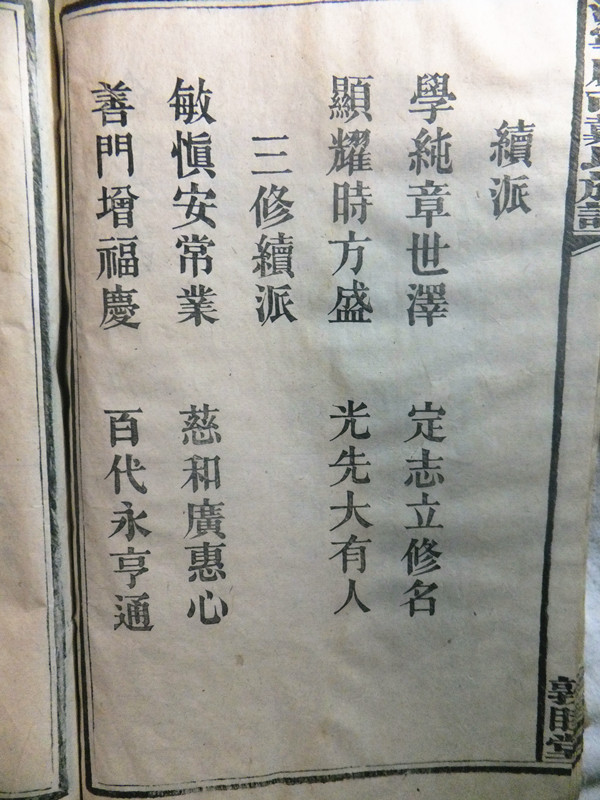 續派
學純章世澤 定志立修名
顯耀時方盛 光先大有人
三修續派
敏慎安常業 慈和廣惠心
善門增福慶 百代永亨通
族譜
敦睦堂